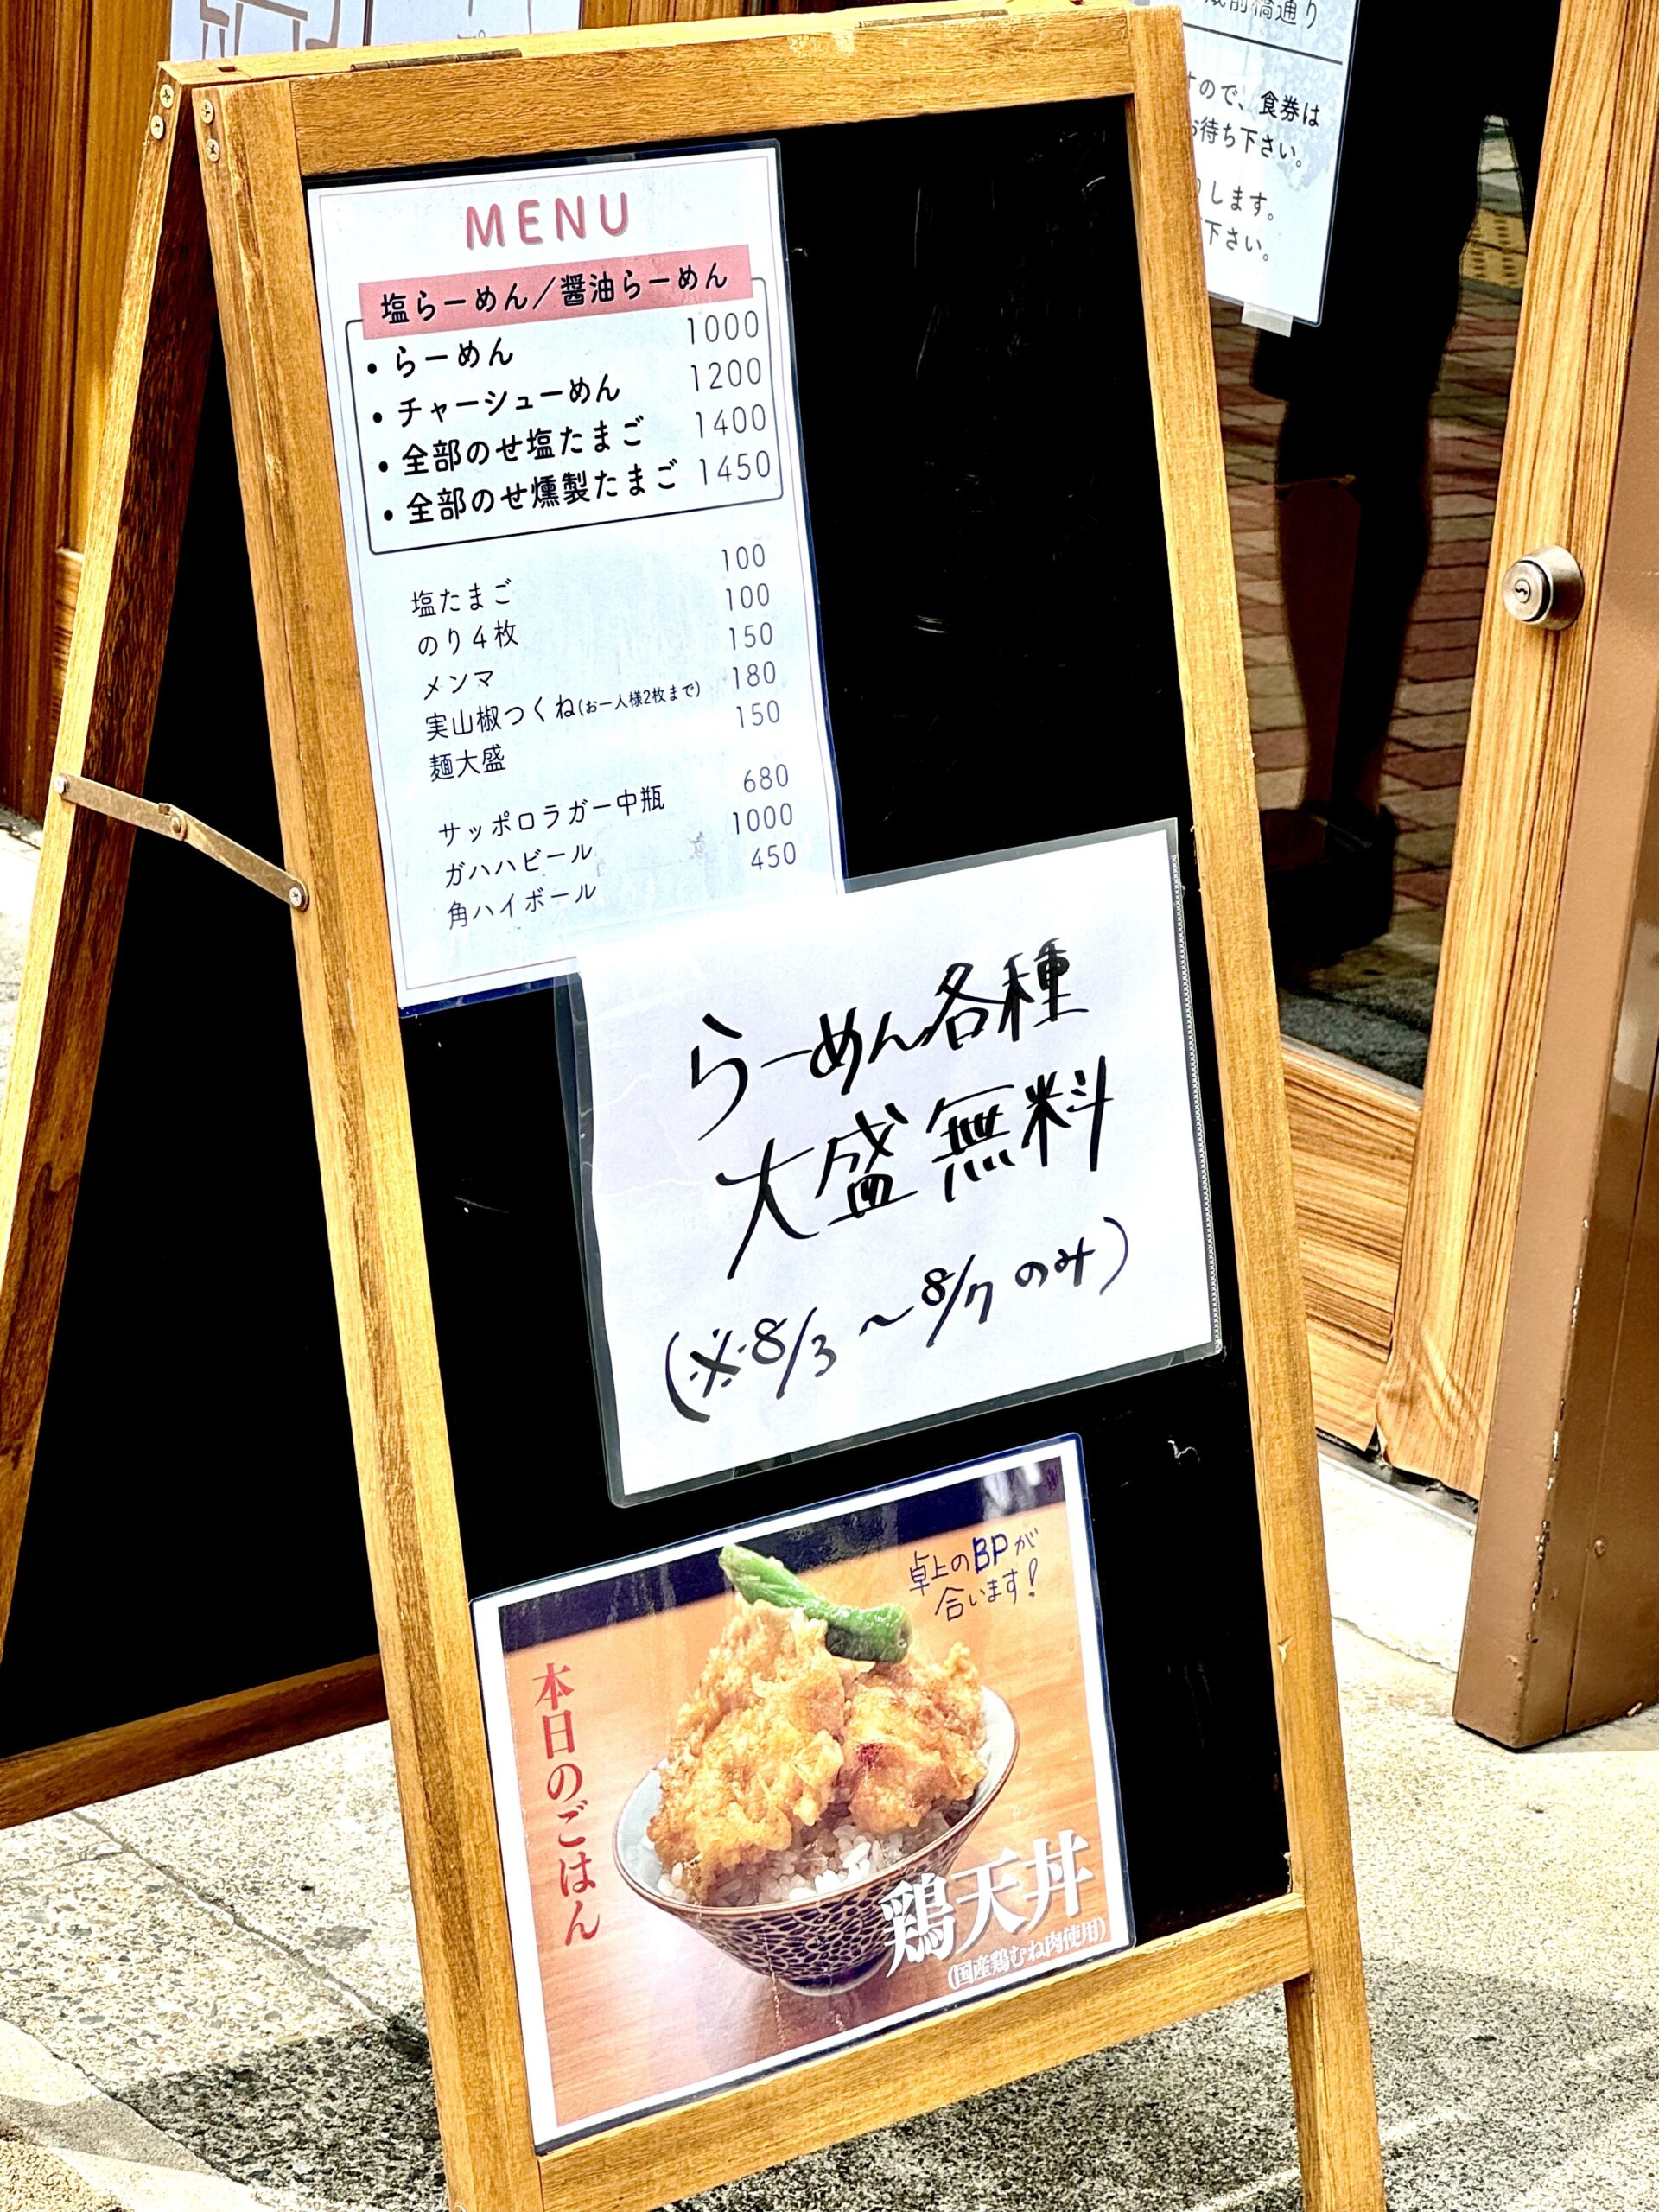 MENU
塩らーめん／醤油らーめん
・らーめん 1000
・チャーシューめん 1200
・全部のせ塩たまご 1400
・全部のせ燻製たまご 1450
塩たまご 100
のり４枚 100
メンマ 150
実山椒つくね(お一人様2枚まで) 180
麺大盛 150
サッポロラガー中瓶 680
ガハハビール 1000
角ハイボール 450
らーめん各種
大盛無料
(※8/3～8/7のみ)
卓上のBPが
合います!
本日のごはん
鶏天丼
(国産鶏むね肉使用)
前橋通り
ので、食券は
お待ち下さい。
します。
下さい。